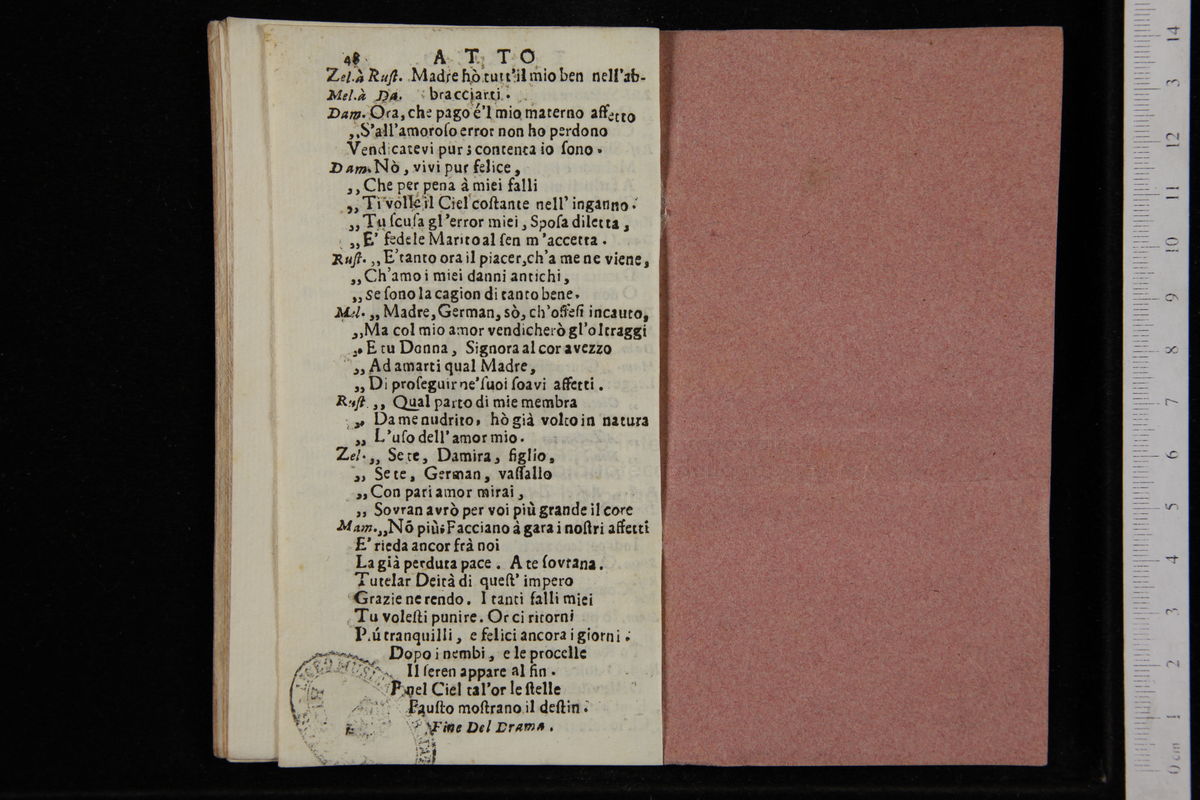 48 ATTO
Zel.à Ruſt. Madre hò tutt'il mio ben nell'ab-
Mel.à Da. bracciarti.
Dam. Ora, che pago é'l mio materno affetto
,,S'all'amoroſo error non ho perdono
Vendicatevi pur; contenta io ſono.
Dam. Nò, vivi pur felice,
,,Che per pena à miei falli
,,Ti volle il Ciel coſtante nell'inganno.
,,Tu ſcuſa gl'error miei, Spoſa diletta,
,,E' fedele Marito al ſen m'accetta.
Ruſt. ,,E'tanto ora il piacer,ch'a me ne viene,
,,Ch'amo i miei danni antichi,
,,se ſono la cagion di tanto bene.
Mel. ,,Madre, German, sò, ch'offeſi incauto,
,,Ma col mio amor vendicherò gl'oltraggi
,,E tu Donna, Signora al cor avezzo
,,Ad amarti qual Madre,
,,Di proſeguir ne'ſuoi ſoavi affetti.
Ruſt ,,Qual parto di mie membra
,,Da me nudrito, hò già volto in natura
,,L'uſo dell'amor mio.
Zel. ,,Se te, Damira, figlio,
,,Se te, German, vaſſallo
,,Con pari amor mirai,
,,Sovran avrò per voi più grande il core
Mam. ,,Nõ più: Facciano à gara i noſtri affetti
E' rieda ancor frà noi
La già perduta pace. A te ſovrana.
Tutelar Deità di queſt' impero
Grazie ne rendo. I tanti falli miei
Tu voleſti punire. Or ci ritorni
P.ú tranquilli, e felici ancora i giorni.
Dopo i nembi, e le procelle
Il ſeren appare al fin.
E nel Ciel tal'or le ſtelle
Fauſto moſtrano il deſtin.
Fine Del Drama.
LICEO MUSICALE
0 cm 1 2 3 4 5 6 7 8 9 10 11 12 13 14